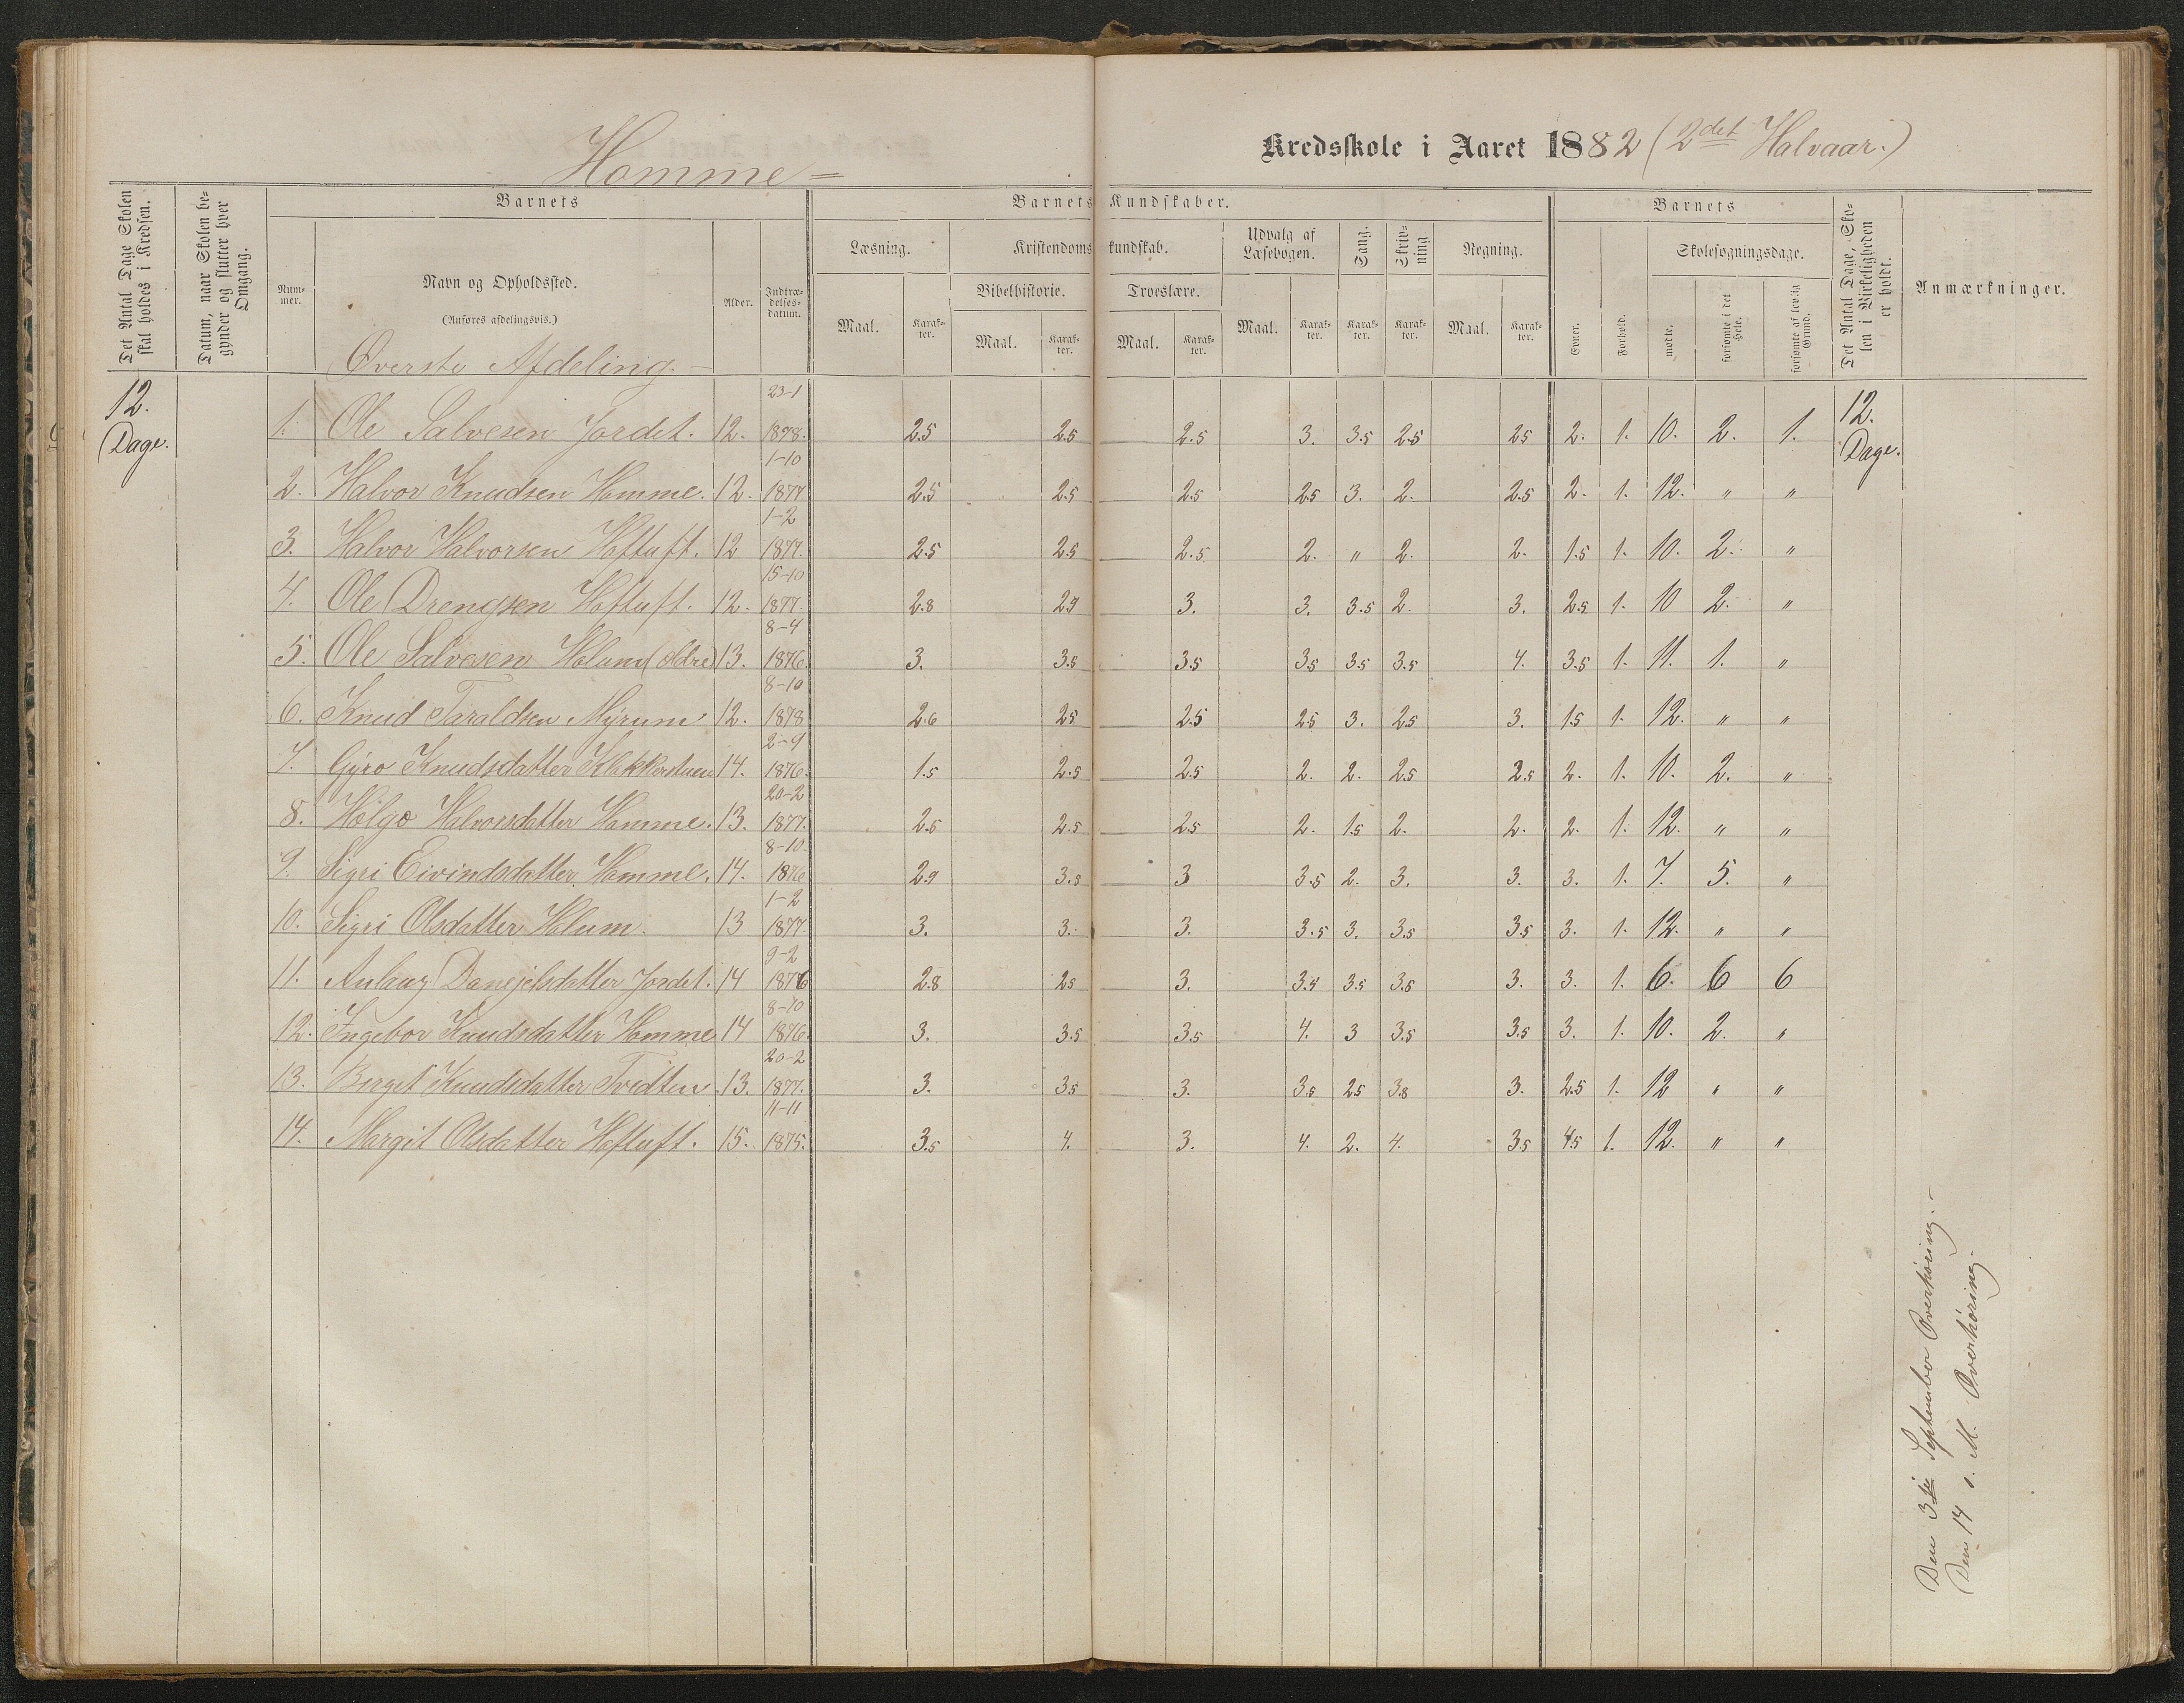 Homme
Kredsskole i Aaret 1882 (2det Halvaar.)
Det Antal Dage Skolen skal holdes i Kredsen.
Datum, naar Skolen begynder og slutter hver Omgang.
Barnets
Barnets Kundskaber.
Barnets
Det Antal Dage, Skolen i Virkeligheden er holdt.
Anmærkninger.
Nummer.
Navn og Opholdssted.
(Anføres afdelingsvis.)
Alder.
Indtrædelsesdatum.
Læsning.
Kristendomskundskab.
Udvalg af Læsebogen.
Sang.
Skrivning
Regning.
Skolesøgningsdage.
Bibelhistorie.
Troeslære.
Maal. Karakter. Maal. Karakter. Maal. Karakter. Maal. Karakter. Karakter. Karakter. Maal. Karakter.
Evner. Forhold. mødte. forsømte i det Hele. forsømte af lovlig Grund.
Øverste Afdeling.
12. Dage.
12. Dage.
1. Ole Salvesen Jordet. 12. 23-1 1878. 2.5 2.5 2.5 3. 3.5 2.5 2.5 2. 1. 10. 2. 1.
2. Halvor Knudsen Homme. 12. 1-10 1877 2.5 2.5 2.5 2.5 3. 2. 2.5 2. 1. 12. " "
3. Halvor Halvorsen Hoftuft. 12 1-2 1877. 2.5 2.5 2.5 2. " 2. 2. 1.5 1. 10. 2. "
4. Ole Drengsen Hoftuft. 12. 15-10 1877. 2.8 2.9 3. 3. 3.5 2. 3. 2.5 1. 10 2. "
5. Ole Salvesen Holum (ældre) 13. 8-4 1876. 3. 3.5 3.5 3.5 3.5 3.5 4. 3.5 1. 11. 1. "
6. Knud Taraldsen Myrum 12. 8-10 1878 2.6 2.5 2.5 2.5 3. 2.5 3. 1.5 1. 12. " "
7. Gyro Knudsdatter Klakkerstuen 14. 2-9 1876. 1.5 2.5 2.5 2. 2. 2.5 2.5 2. 1. 10. 2. "
8. Helge Halvorsdatter Homme. 13. 20-2 1877. 2.5 2.5 2.5 2. 1.5 2. 2. 2. 1. 12. " "
9. Sigri Eivindsdatter Homme. 14. 8-10. 1876 2.9 3.5 3 3.5 2. 3. 3. 3. 1. 7. 5. "
10. Sigri Olsdatter Holum. 13 1-2 1877. 3. 3. 3. 3.5 3. 3.5 3.5 3. 1. 12. " "
11. Aulaug Danejelsdatter Jordet. 14 9-2 1876 2.8 2.5 3. 3.5 3.5 3.5 3. 3. 1. 6. 6 6
12. Ingebor Knudsdatter Homme 14 8-10 1876. 3. 3.5 3.5 4. 3 3.5 3.5 3. 1. 10. 2. "
13. Birget Knudsdatter Tvedten. 13. 20-2 1877. 3. 3.5 3. 3.5 2.5 3.8 3. 2.5 1. 12 " "
14. Margit Olsdatter Hoftuft. 15. 11-11 1875. 3.5 4. 3. 4. 2. 4. 3.5 4.5 1. 12. " "
Den 3die September Overhøring.
Den 14 s. M. Overhøring.